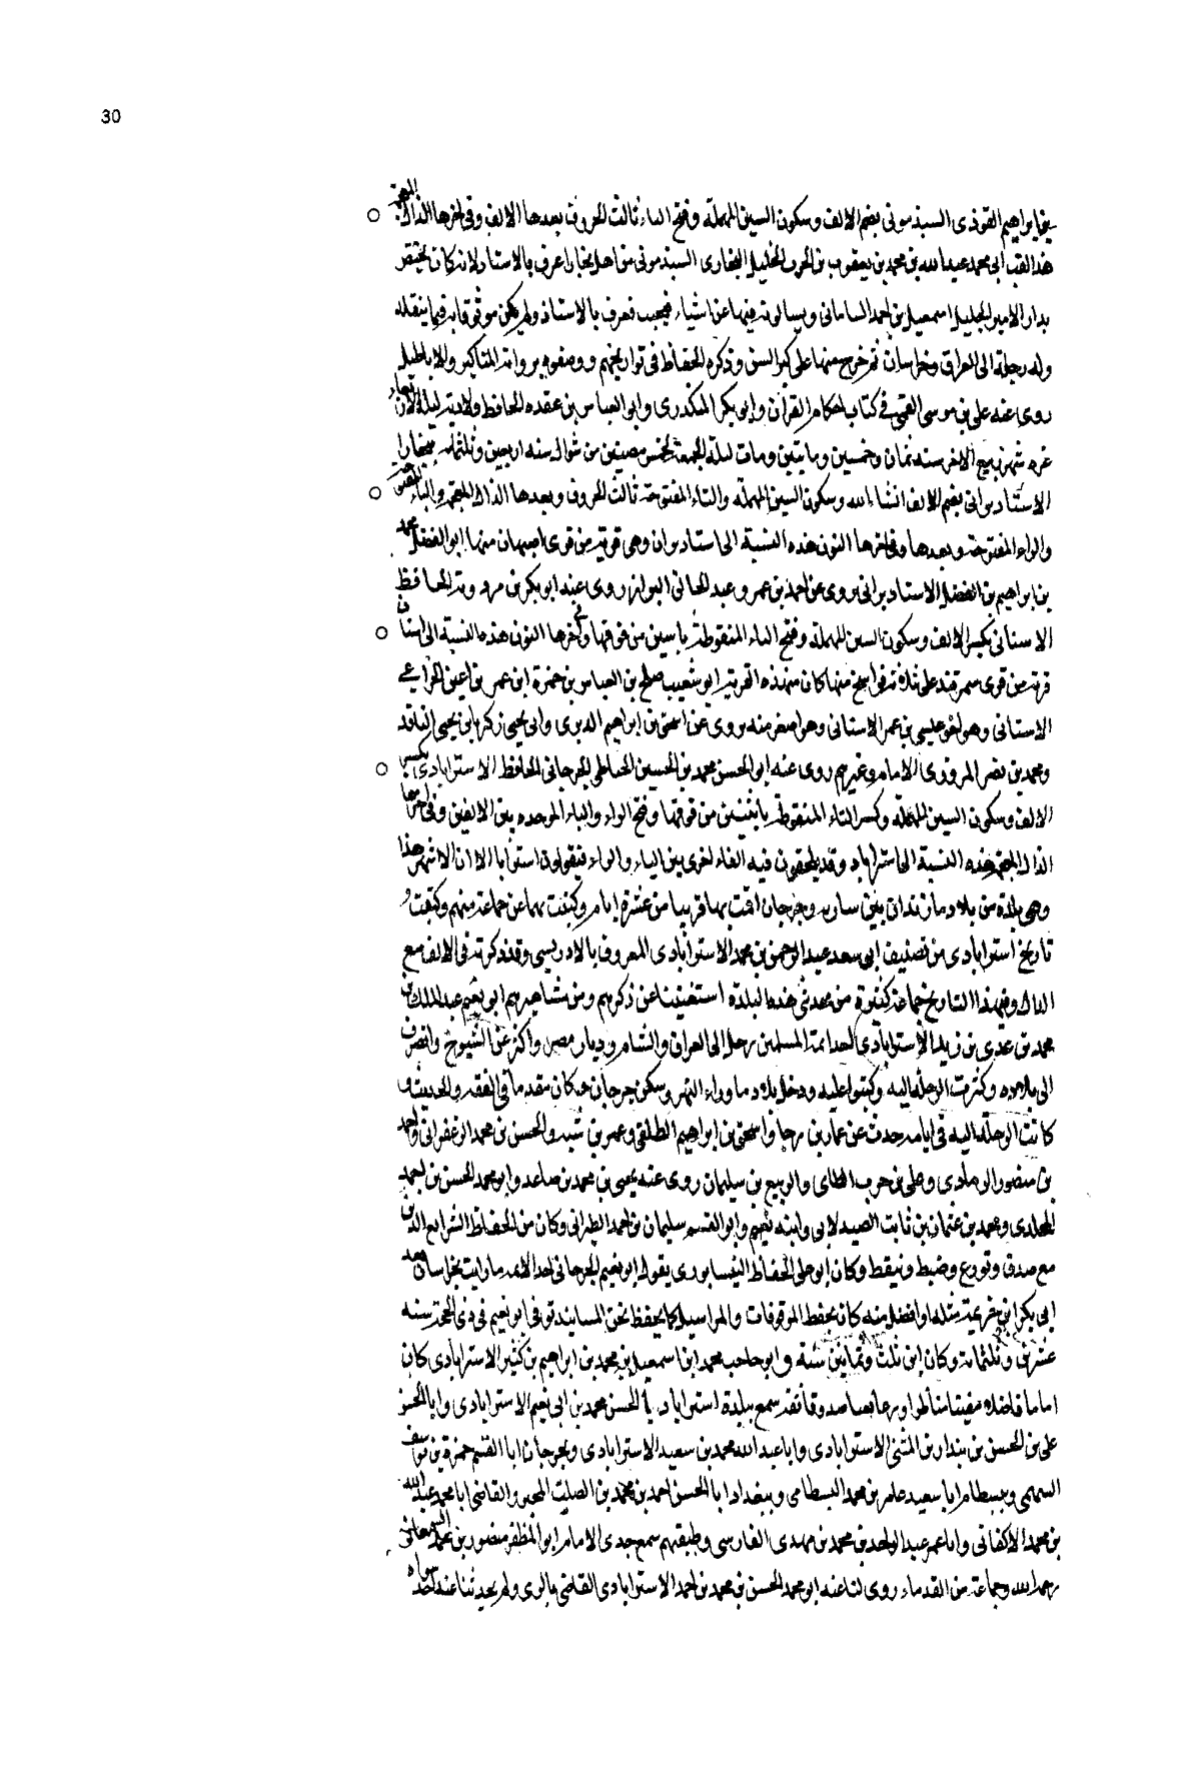 30
بن ابراهيم القوذى السبذمونى بضم الالف وسكون السين المهملة وفتح التاء ثالث الحروف بعدها الالف وفى اخرها الذال المعجمة
هذا لقب ابى محمد عبد الله بن محمد بن يعقوب بن الحرث بن الخليل البخارى السبذمونى من اهل بخارا عرف بالاستاد لانه كان يختص
بدار الامير الجليل اسمعيل بن احمد السامانى ويسالونه فيها عن اشياء فيجيب فعرف بالاستاذ ولم يكن موثوقا به فيما ينقله
وله رحلة الى العراق وخراسان ثم خرج منها على كبر السن وذكره الحفاظ فى تواريخهم ووصفوه برواية المناكير والاباطيل
روى عنه على بن موسى القمى فى كتاب احكام القرآن وابو بكر المنكدرى وابو العباس بن عقده الحافظ ولادته ليلة الاربعاء
غره شهر ربيع الاخر سنه ثمان وخمسين ومايتين ومات ليلة الجمعة لخمس مضين من شوال سنه اربعين وثلثمايه ببخارا
الاستاد برانى بضم الالف انشاء الله وسكون السين المهملة والتاء المفتوحة ثالث الحروف وبعدها الذال المعجمة والباء
والراء المفتوحة وبعدها وفى اخرها النون هذه النسبة الى استاد بران وهى قرية من قرى اصبهان منها ابو الفضل محمد
بن ابراهيم بن الفضل الاستاد برانى يروى عن احمد بن عمرو عبد الخالق البزاز روى عنه ابو بكر بن مردويه الحافظ
الاستانى بكسر الالف وسكون السين المهملة وفتح التاء المنقوطة باثنين من فوقها وفى اخرها النون هذه النسبة الى استان
قرية من قرى سمرقند على ثلاثة فراسخ منها كان من هذه القرية ابو شعيب صالح بن العباس بن حمزة ابن عمر بن اعين الخزاعى
الاستانى وهو اخو عيسى بن عمر الاستانى وهو اصغر منه يروى عن اسحق بن ابراهيم الدبرى وابى يحيى زكريا بن يحيى الناقد
ومحمد بن نصر المروزى الامام وغيرهم روى عنه ابو الحسن محمد بن الحسين الحناطى الجرجانى الحافظ الاستراباذى بكسر
الالف وسكون السين المهملة وكسر التاء المنقوطة باثنتين من فوقها وفتح الراء والباء الموحده بين الالفين وفى اخرها
الذال المعجمة هذه النسبة الى استراباد وقد يلحقون فيه الفا اخرى بين التاء والراء فيقولون استاراباد الا ان الاشهر هذا
وهى بلدة من بلاد مازندران بين ساريه وجرجان اقمت بها قريبا من عشرة ايام وكتبت بها عن جماعة منهم وكتبت
تاريخ استراباذى من تصنيف ابى سعد عبد الرحمن بن محمد الاستراباذى المعروف بالادريسى وقد ذكرته فى الالف مع
الدال وفى هذا التاريخ جماعة كثيرة من محدثى هذه البلدة استغنينا عن ذكرهم ومن مشاهيرهم ابو نعيم عبد الملك بن
محمد بن عدى بن زيد الاستراباذى احد ائمة المسلمين رحل الى العراق والشام وديار مصر واكثر عن الشيوخ وانصرف
الى بلاده وكثرت الرحلة اليه وكتبوا عليه ودخل بلاد ما وراء النهر وسكن جرجان وكان مقدما فى الفقه والحديث و
كانت الرحلة اليه فى ايامه حدث عن عمار بن رجا واسحق بن ابراهيم الطلقى وعمر بن شبه والحسن بن محمد الزعفرانى واحمد
بن منصور الرمادى وعلى بن حرب الطائى والربيع بن سليمان روى عنه يحيى بن محمد بن صاعد وابو محمد الحسن بن احمد
المخلدى ومحمد بن عثمان بن ثابت الصيدلانى وابنه نعيم وابو القسم سليمان بن احمد الطبرانى وكان من الحفاظ الشرايع الدين
مع صدق وتورع وضبط وتيقظ وكان ابو على الحفاظ النيسابورى يقول ابو نعيم الجرجانى احد الائمة ما رايت بخراسان بعد
ابى بكر ابن خزيمة مثله او افضل منه كان يحفظ الموقوفات والمراسيل كما يحفظ نحن المسانيد توفى ابو نعيم فى ذى الحجة سنه
عشرين وثلثماية وكان ابن ثلث وثمانين سنة وابو حاجب محمد ابن اسمعيل بن محمد بن ابراهيم بن كثير الاستراباذى كان
اماما فاضلا مفتيا مناظرا ورعا صدوقا ثقة سمع ببلدة استراباد با الحسن محمد بن ابى نعيم الاستراباذى وابا الحسن
على بن الحسن بن بندار بن المثنى الاستراباذى وابا عبد الله محمد بن سعيد الاستراباذى وبجرجان ابا القسم حمزة بن يوسف
السهمى وببسطام ابا سعيد عامر بن محمد البسطامى وببغداد ابا الحسن احمد بن محمد بن الصلت المجبر والقاضى ابا محمد عبد الله
بن محمد الاكفانى وابا عمر عبد الواحد بن محمد بن مهدى الفارسى وطبقتهم سمع جدى الامام ابو المظفر منصور بن محمد السمعانى
رحمه الله وجماعة من القدماء روى لنا عنه ابو محمد الحسن بن محمد بن احمد الاستراباذى القاضى بالرى ولم يحدثنا عنه احد سواه